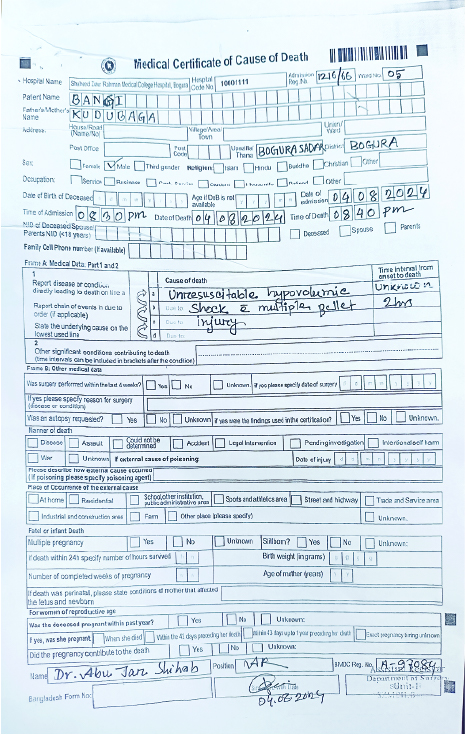 Medical Certificate of Cause of Death
Hospital Name Shaheed Ziaur Rahman Medical College Hospital, Bogura Hospital Code No 10001111 Admission Reg No 1216/66 Ward No 05
Patient Name BANGI
Father's/Mother's Name KUDUBAGA
Address: House/Road (Name/No) Village/Area/Town Union/Ward
Post Office Post Code Upazilla/Thana BOGURA SADAR District BOGURA
Sex: Female ✓ Male Third gender Religion: Islam Hindu Buddha Christian Other
Occupation: Service Business Other
Date of Birth of Deceased Age if DoB is not available Date of admission 04082024
Time of Admission 0830 PM Date of Death 04082024 Time of Death 0840 PM
NID of Deceased/Spouse/Parents NID (<18 years) Deceased Spouse Parents
Family Cell Phone number (if available)
Frame A: Medical Data: Part 1 and 2
1 Cause of death Time interval from onset to death
Report disease or condition directly leading to death on line a
a Unresuscitable hypovolumic Unknown
Report chain of events in due to order (if applicable)
b Due to: Shock c multiple pellet 2hrs
State the underlying cause on the lowest used line
c Due to: injury
d Due to:
2 Other significant conditions contributing to death (time intervals can be included in brackets after the condition)
Frame B: Other medical data
Was surgery performed within the last 4 weeks? Yes No Unknown If yes please specify date of surgery
If yes please specify reason for surgery (disease or condition)
Was an autopsy requested? Yes No Unknown If yes were the findings used in the certification? Yes No Unknown.
Manner of death
Disease Assault Could not be determined Accident Legal Intervention Pending investigation Intentional self harm
War Unknown If external cause of poisoning Date of injury
Please describe how external cause occurred (If poisoning please specify poisoning agent)
Place of Occurrence of the external cause
At home Residential School, other institution, public administrative area Sports and athletics area Street and highway Trade and Service area
Industrial and construction area Farm Other place (please specify) Unknown.
Fetal or infant Death
Multiple pregnancy Yes No Unknown Stillborn? Yes No Unknown:
If death within 24h specify number of hours survived Birth weight (in grams)
Number of completed weeks of pregnancy Age of mother (years)
If death was perinatal, please state conditions of mother that affected the fetus and newborn
For women of reproductive age
Was the deceased pregnant within past year? Yes No Unknown:
If yes, was she pregnant When she died Within the 42 days preceding her death Within 43 days up to 1 year preceding her death Exact pregnancy timing unknown
Did the pregnancy contribute to the death Yes No Unknown:
Name Dr. Abu Jar Shihab Position BMDC Reg. No. A-97084
04.08.2024
Bangladesh Form No: